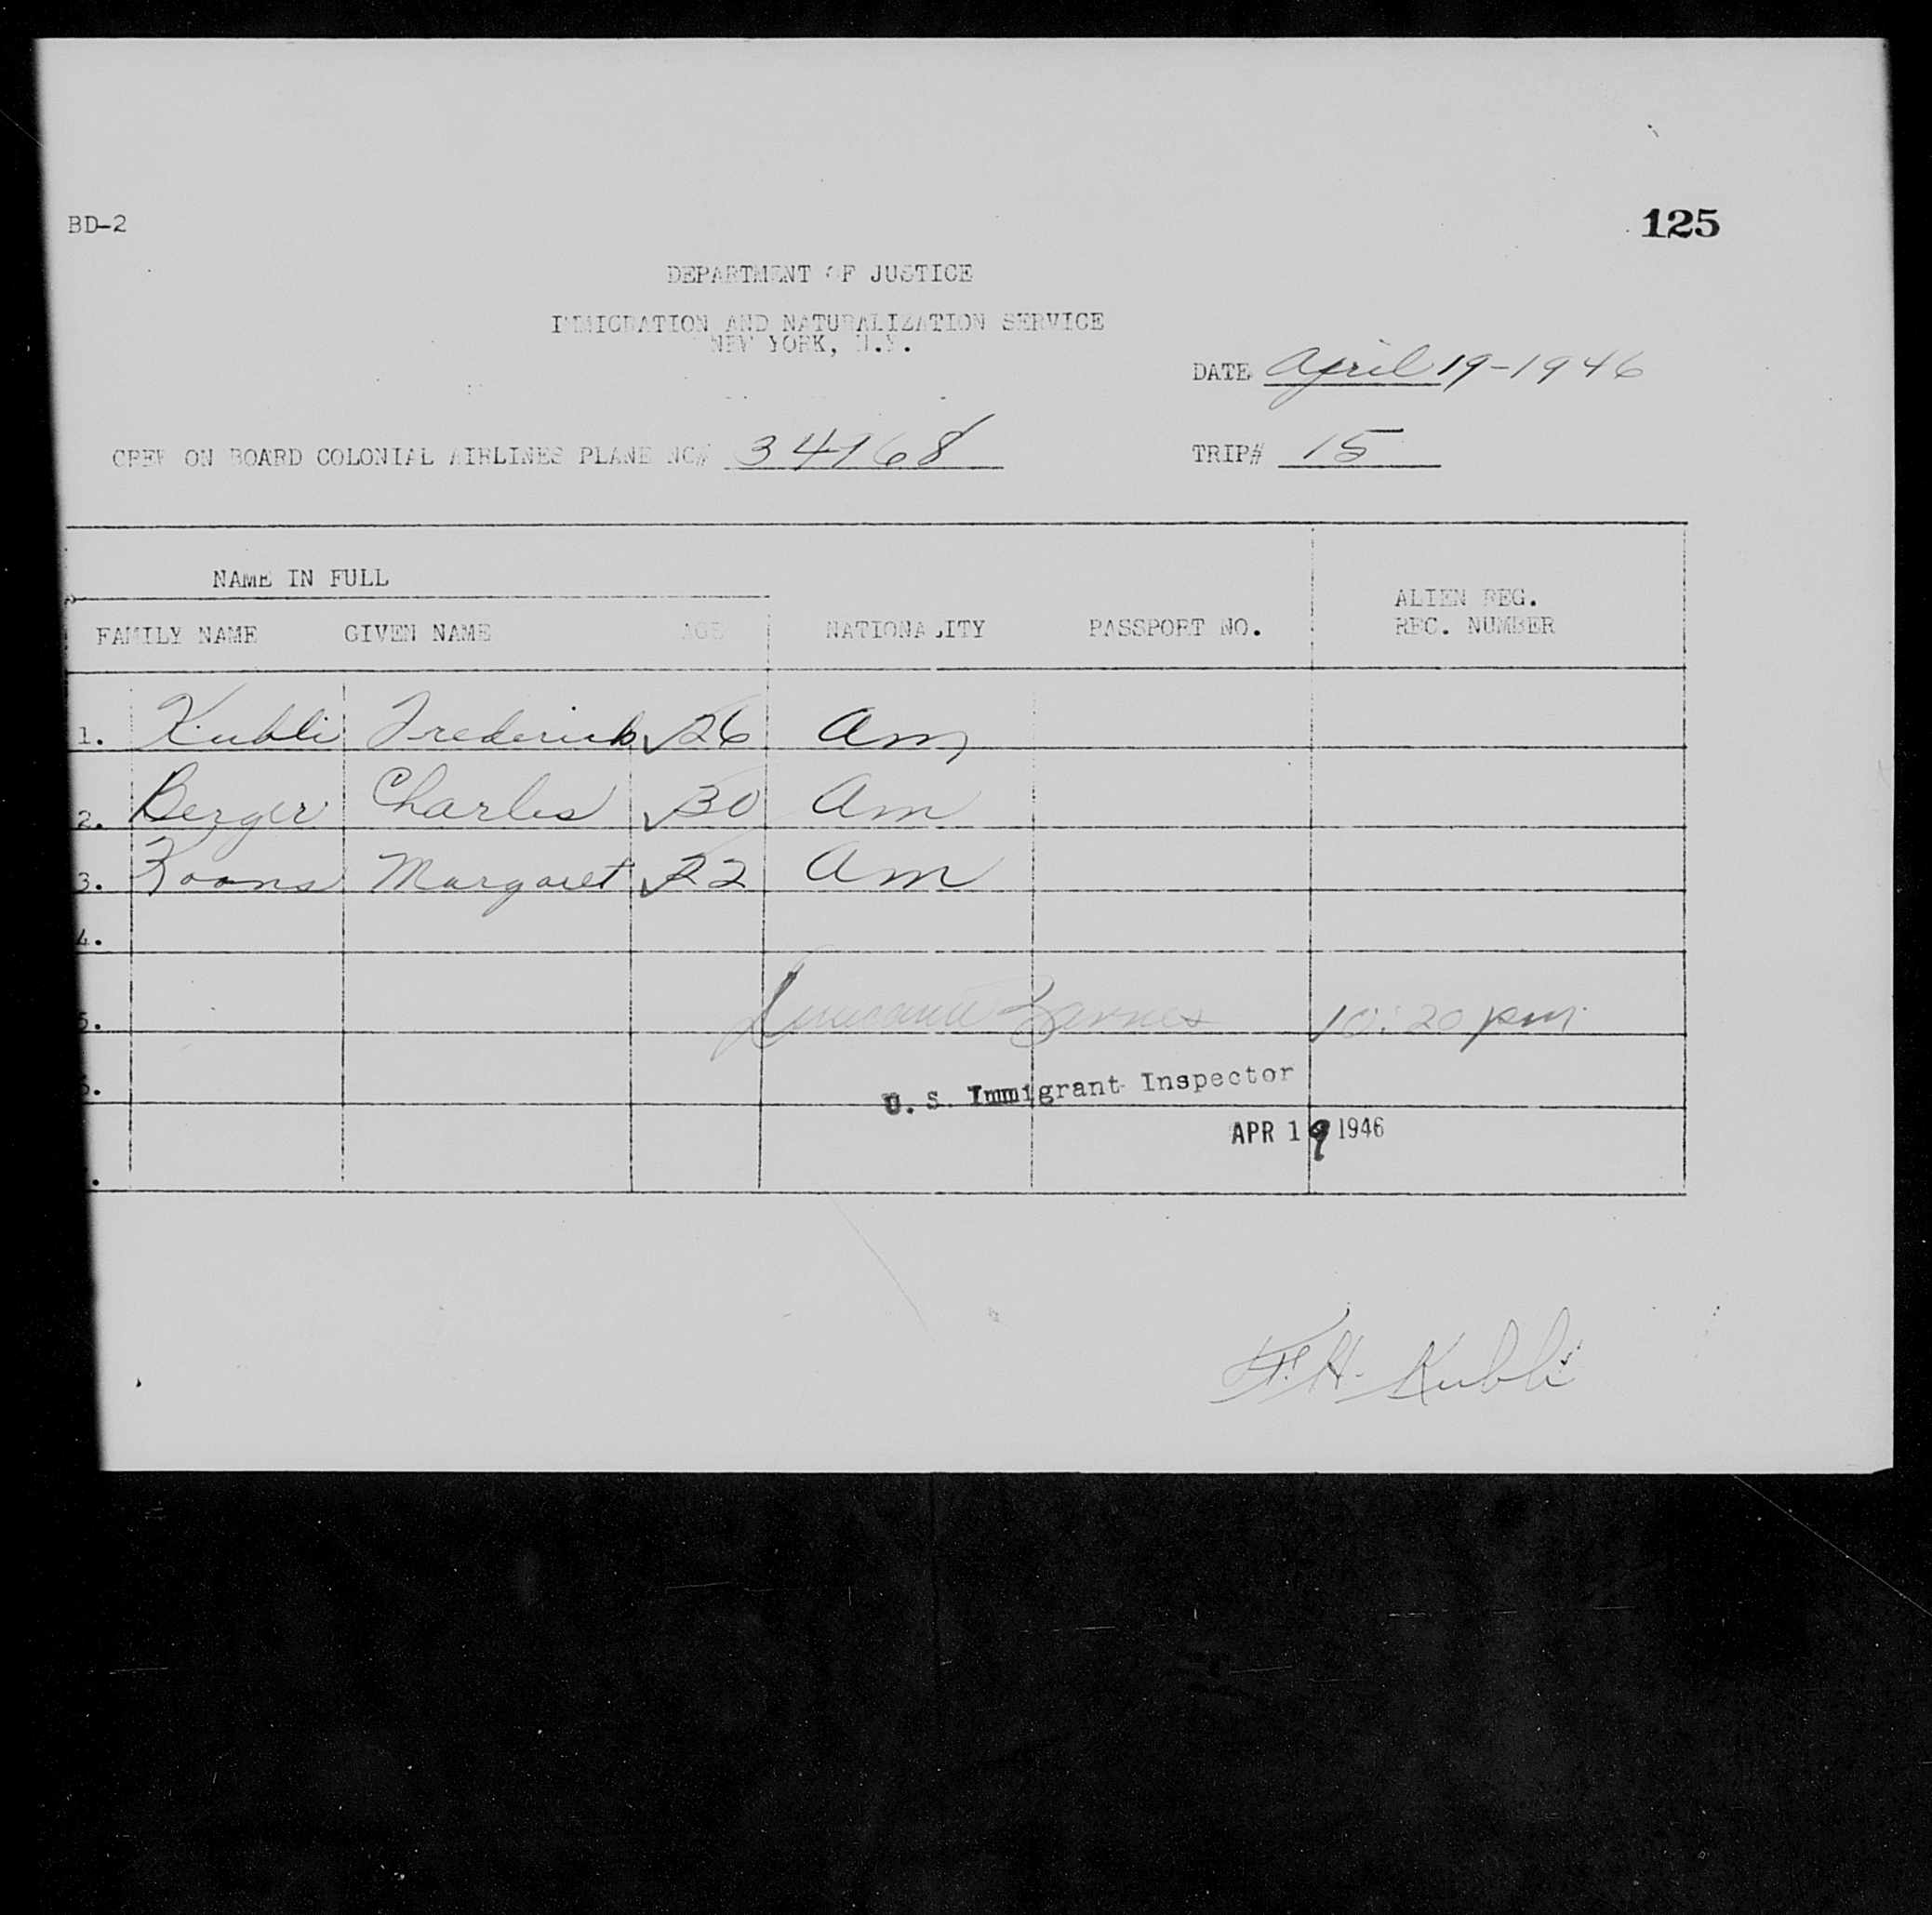 BD-2
125
DEPARTMENT OF JUSTICE
IMMIGRATION AND NATURALIZATION SERVICE
NEW YORK, N.Y.
DATE April 19-1946
CREW ON BOARD COLONIAL AIRLINES PLANE NC# 34168
TRIP# 15
NAME IN FULL
FAMILY NAME GIVEN NAME AGE NATIONALITY PASSPORT NO. ALIEN REG. REC. NUMBER
1. Kubli Frederick 26 Am
2. Berger Charles 30 Am
3. Koons Margaret 22 Am
4.
5. Barnes 10:20 pm
U. S. Immigrant Inspector
APR 19 1946
F.H. Kubli